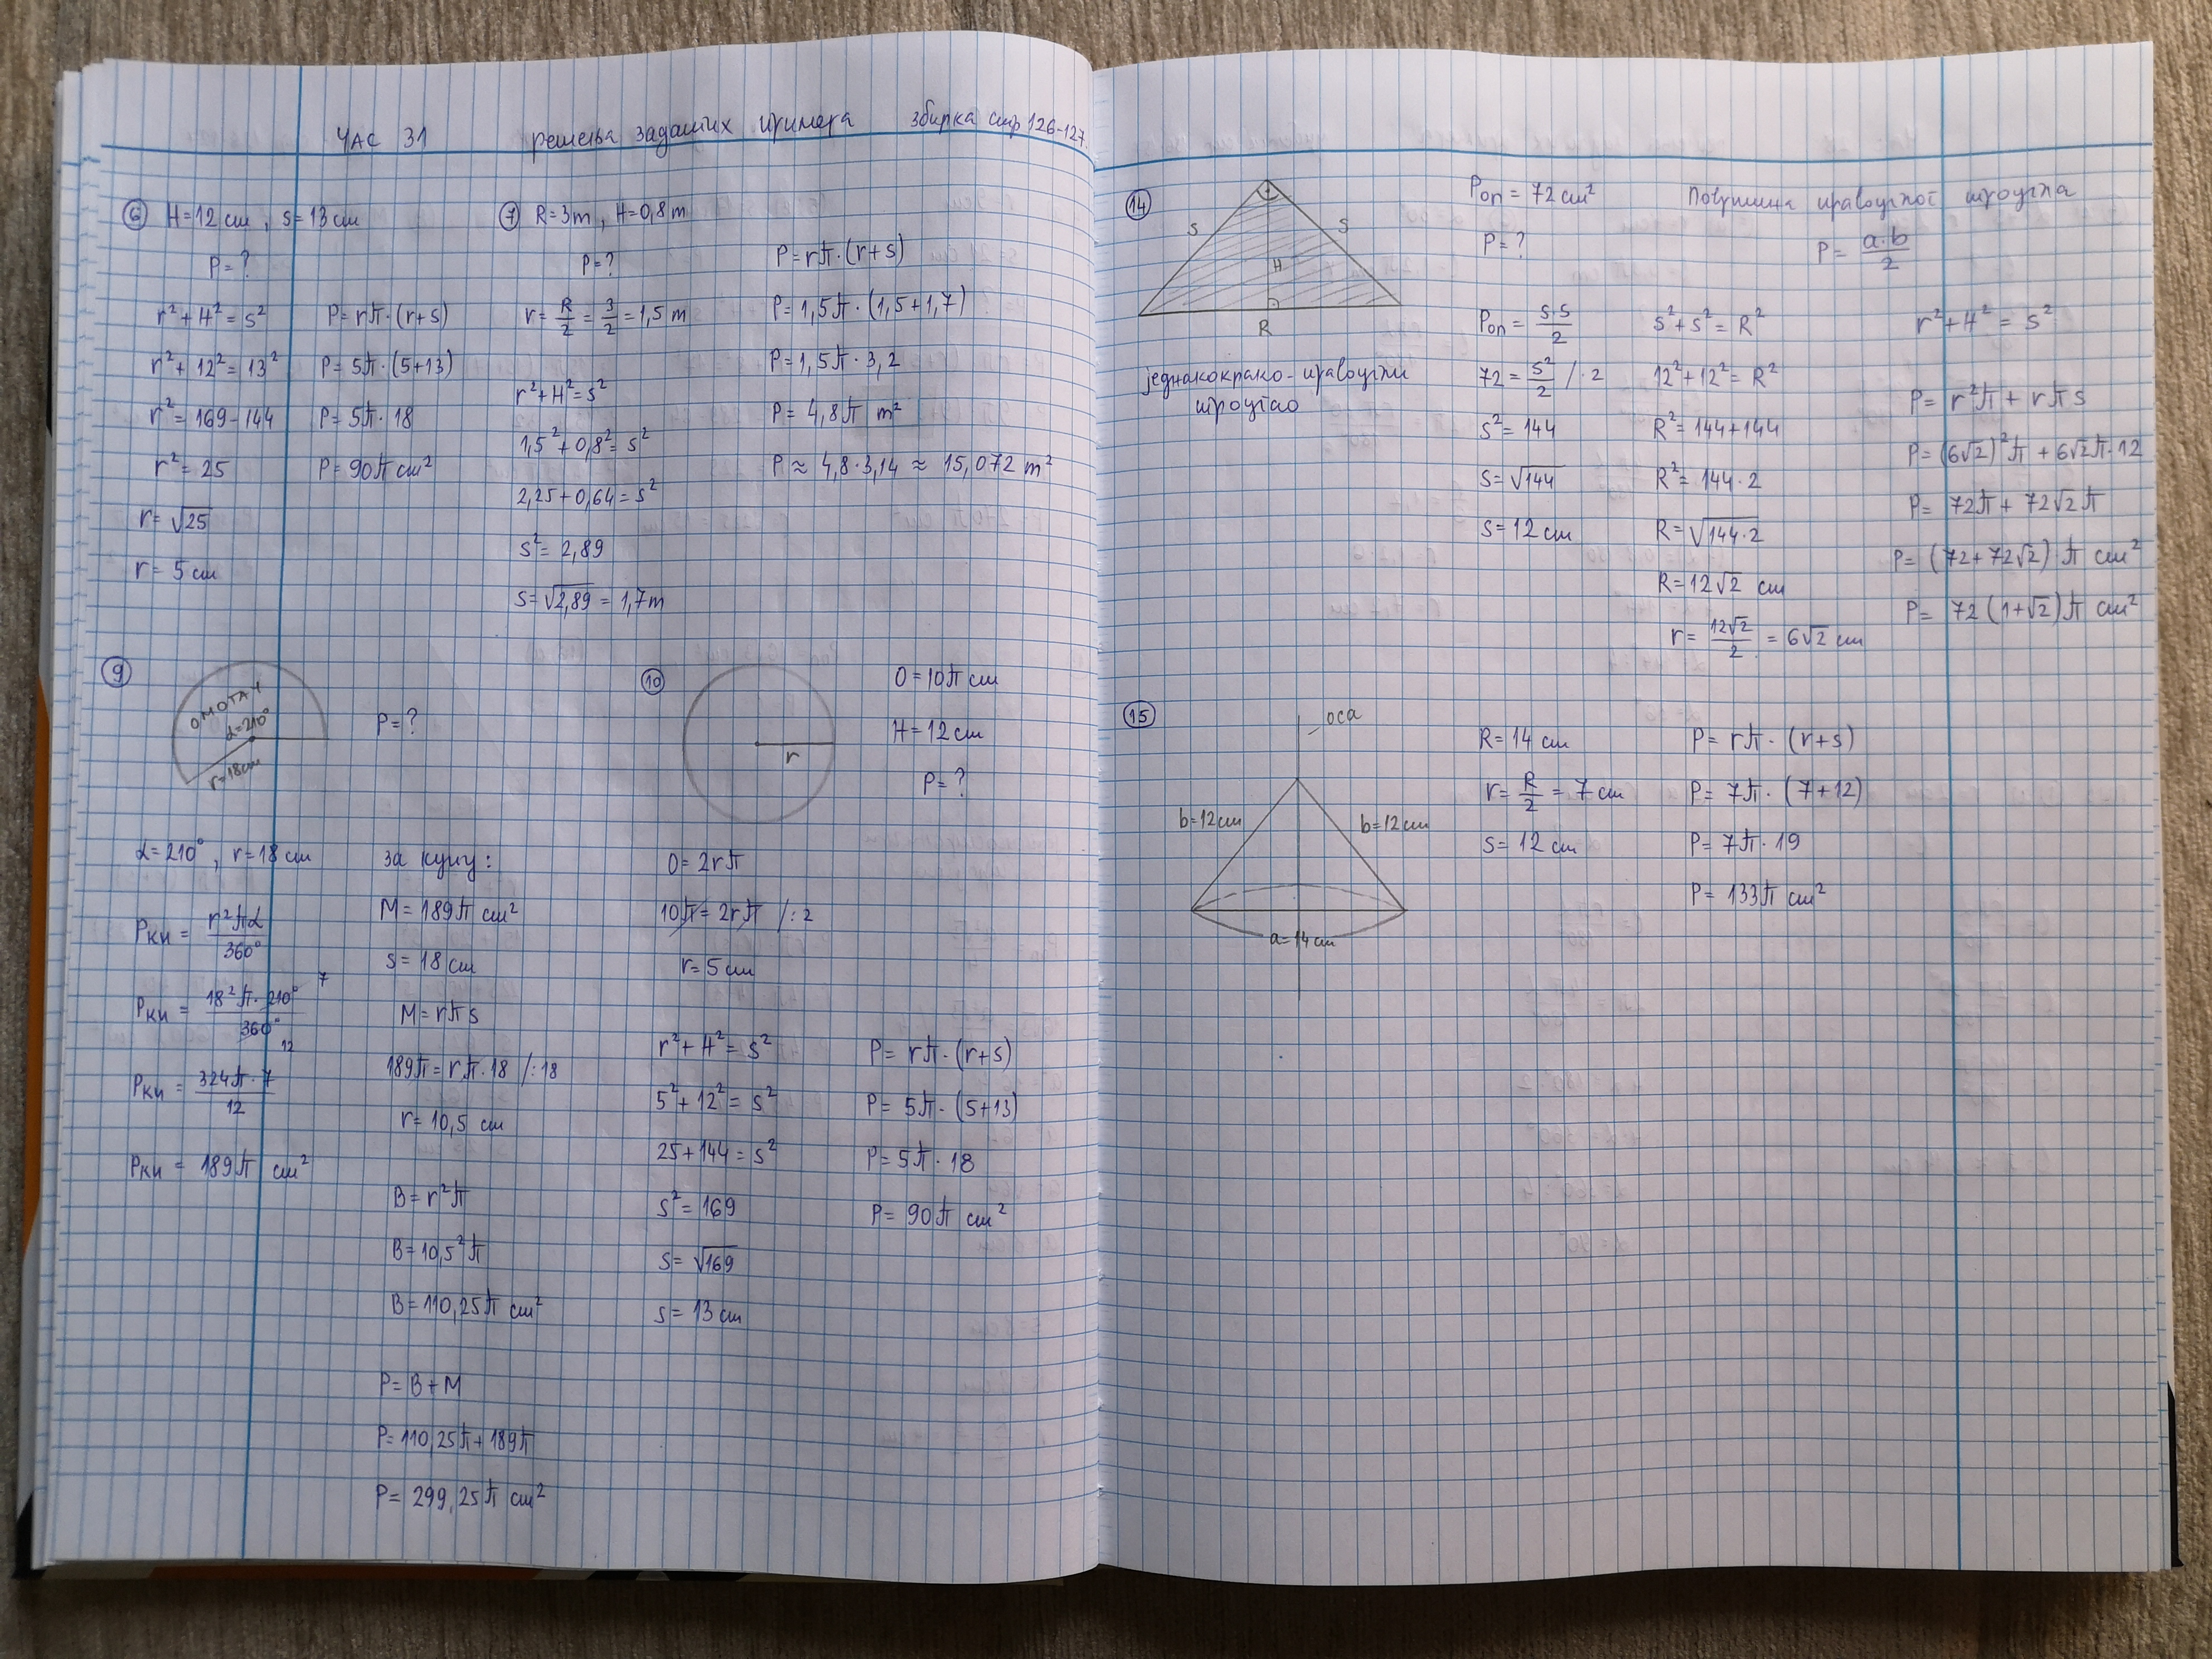 ЧАС 31 решења задатих примера збирка стр 126-127.
6 H=12 cm, s=13 cm
P=?
r²+H²=s²
r²+12²=13²
r²=169-144
r²=25
r=√25
r=5 cm
P=rπ·(r+s)
P=5π·(5+13)
P=5π·18
P=90π cm²
7 R=3m, H=0,8m
P=?
r=R/2=3/2=1,5 m
r²+H²=s²
1,5²+0,8²=s²
2,25+0,64=s²
s²=2,89
s=√2,89=1,7m
P=rπ·(r+s)
P=1,5π·(1,5+1,7)
P=1,5π·3,2
P=4,8π m²
P≈4,8·3,14≈15,072 m²
9
ОМОТАЧ
α=210°
r=18cm
P=?
α=210°, r=18 cm
Pки = r²πα/360°
Pки = 18²π·210°/360° 7 12
Pки = 324π·7/12
Pки = 189π cm²
за купу:
M=189π cm²
s=18 cm
M=rπs
189π=rπ·18 /:18
r=10,5 cm
B=r²π
B=10,5²π
B=110,25π cm²
P=B+M
P=110,25π+189π
P=299,25π cm²
10
r
O=10π cm
H=12 cm
P=?
O=2rπ
10π=2rπ /:2
r=5 cm
r²+H²=s²
5²+12²=s²
25+144=s²
s²=169
s=√169
s=13 cm
P=rπ·(r+s)
P=5π·(5+13)
P=5π·18
P=90π cm²
14
s s
H
R
једнакокрако-правоугли
троугао
Pоп=72 cm²
P=?
Површина правоуглог троугла
P=a·b/2
Pоп=s·s/2
72=s²/2 /·2
s²=144
s=√144
s=12 cm
s²+s²=R²
12²+12²=R²
R²=144+144
R²=144·2
R=√144·2
R=12√2 cm
r=12√2/2=6√2 cm
r²+H²=s²
P=r²π+rπs
P=(6√2)²π+6√2π·12
P=72π+72√2π
P=(72+72√2)·π cm²
P=72(1+√2)π cm²
15
оса
b=12cm b=12cm
a=14cm
R=14 cm
r=R/2=7 cm
s=12 cm
P=rπ·(r+s)
P=7π·(7+12)
P=7π·19
P=133π cm²